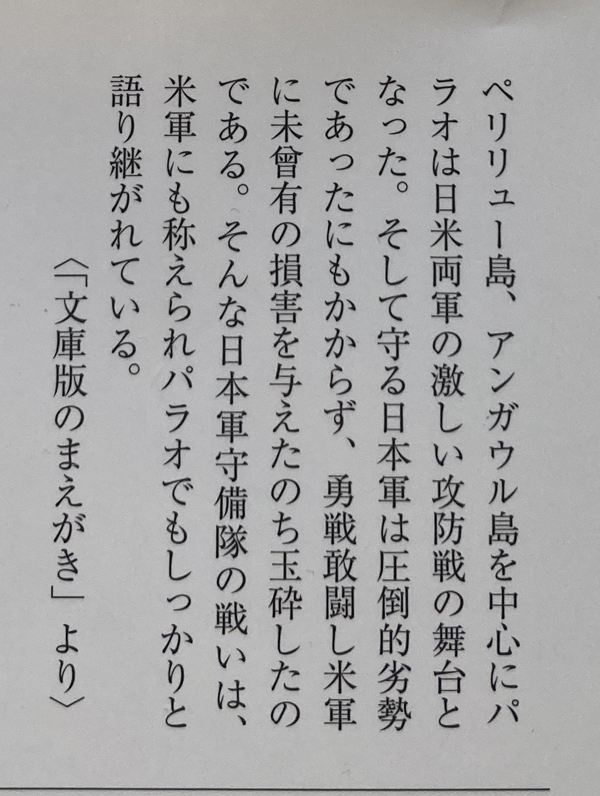 ペリリュー島、アンガウル島を中心にパ
ラオは日米両軍の激しい攻防戦の舞台と
なった。そして守る日本軍は圧倒的劣勢
であったにもかからず、勇戦敢闘し米軍
に未曾有の損害を与えたのち玉砕したの
である。そんな日本軍守備隊の戦いは、
米軍にも称えられパラオでもしっかりと
語り継がれている。
〈「文庫版のまえがき」より〉